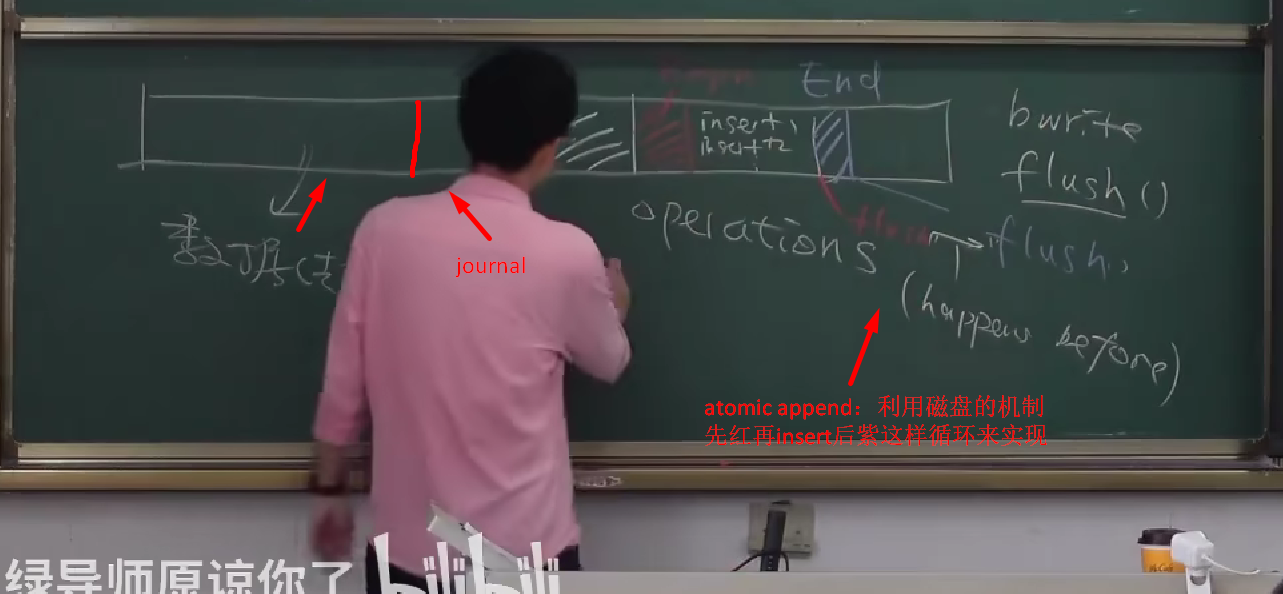 End
insert1
insert2
bwrite
flush()
数据(
operations
flush
flush
(happens before)
journal
atomic append：利用磁盘的机制
先红再insert后紫这样循环来实现
绿导师原谅你了
bilibili